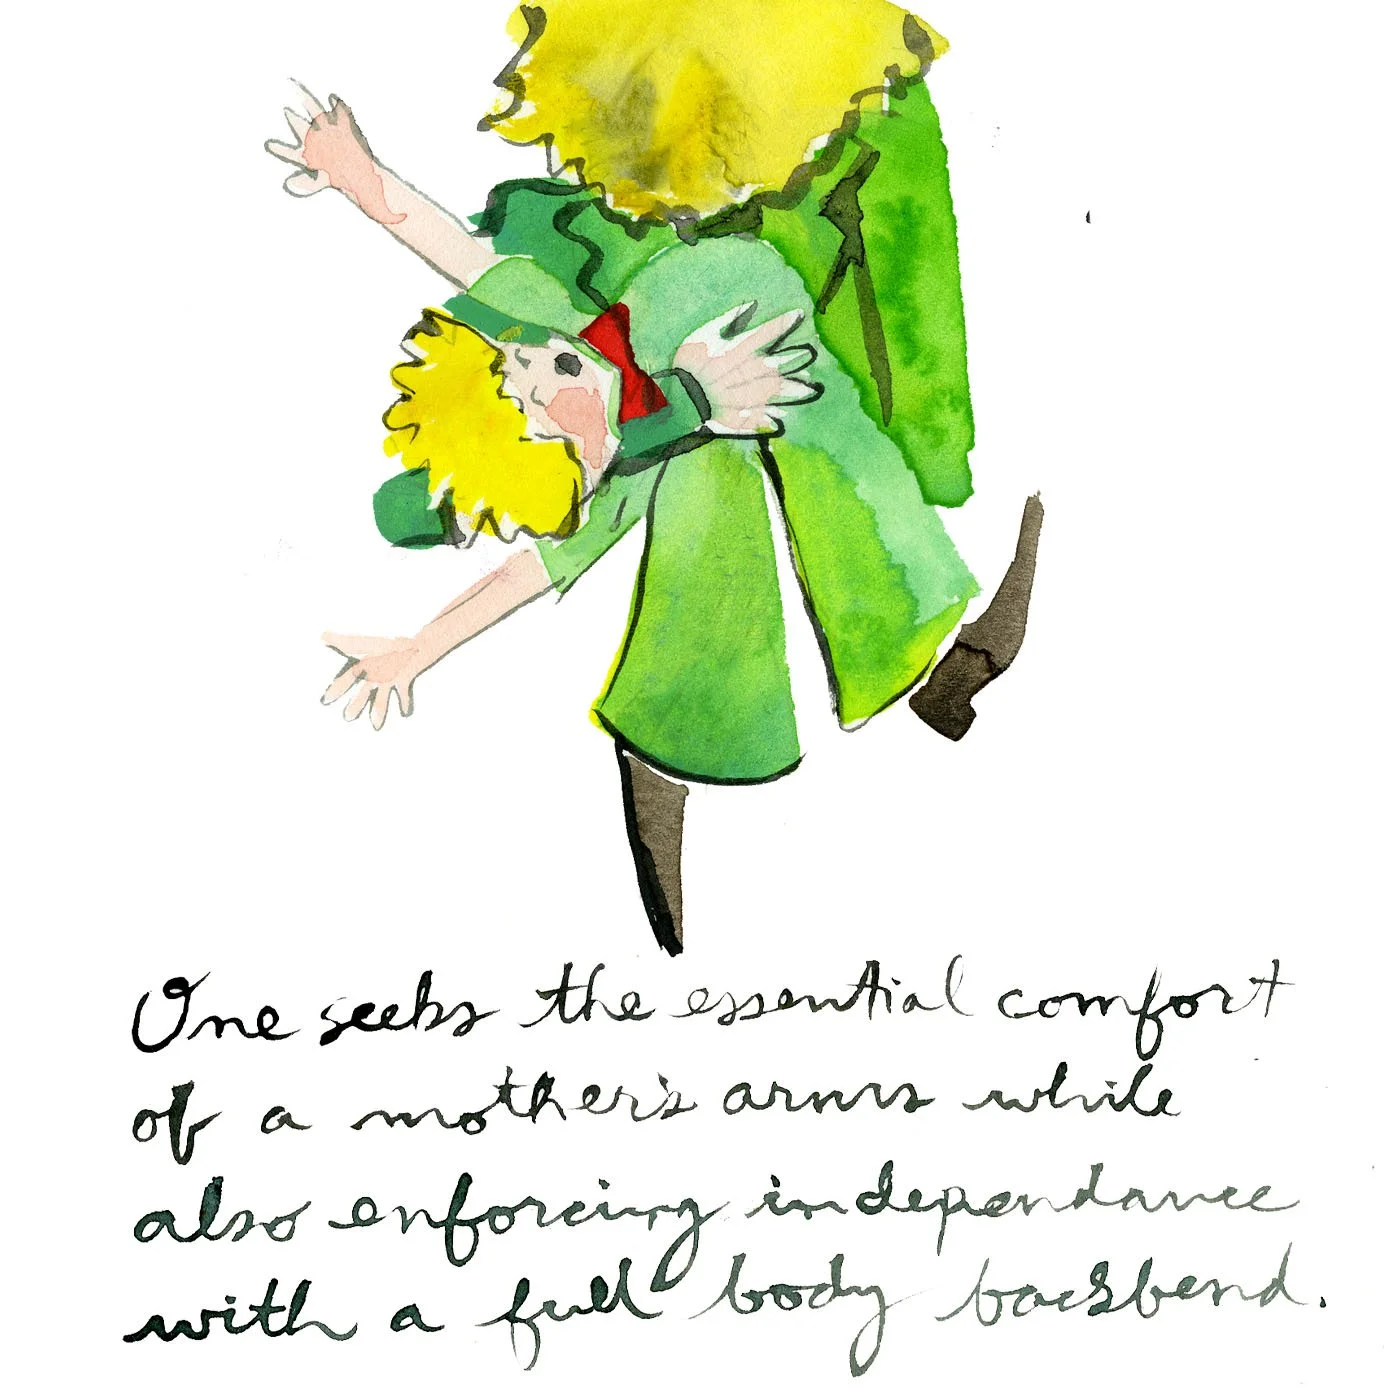 One seeks the essential comfort
of a mother's arms while
also enforcing independance
with a full body backbend.